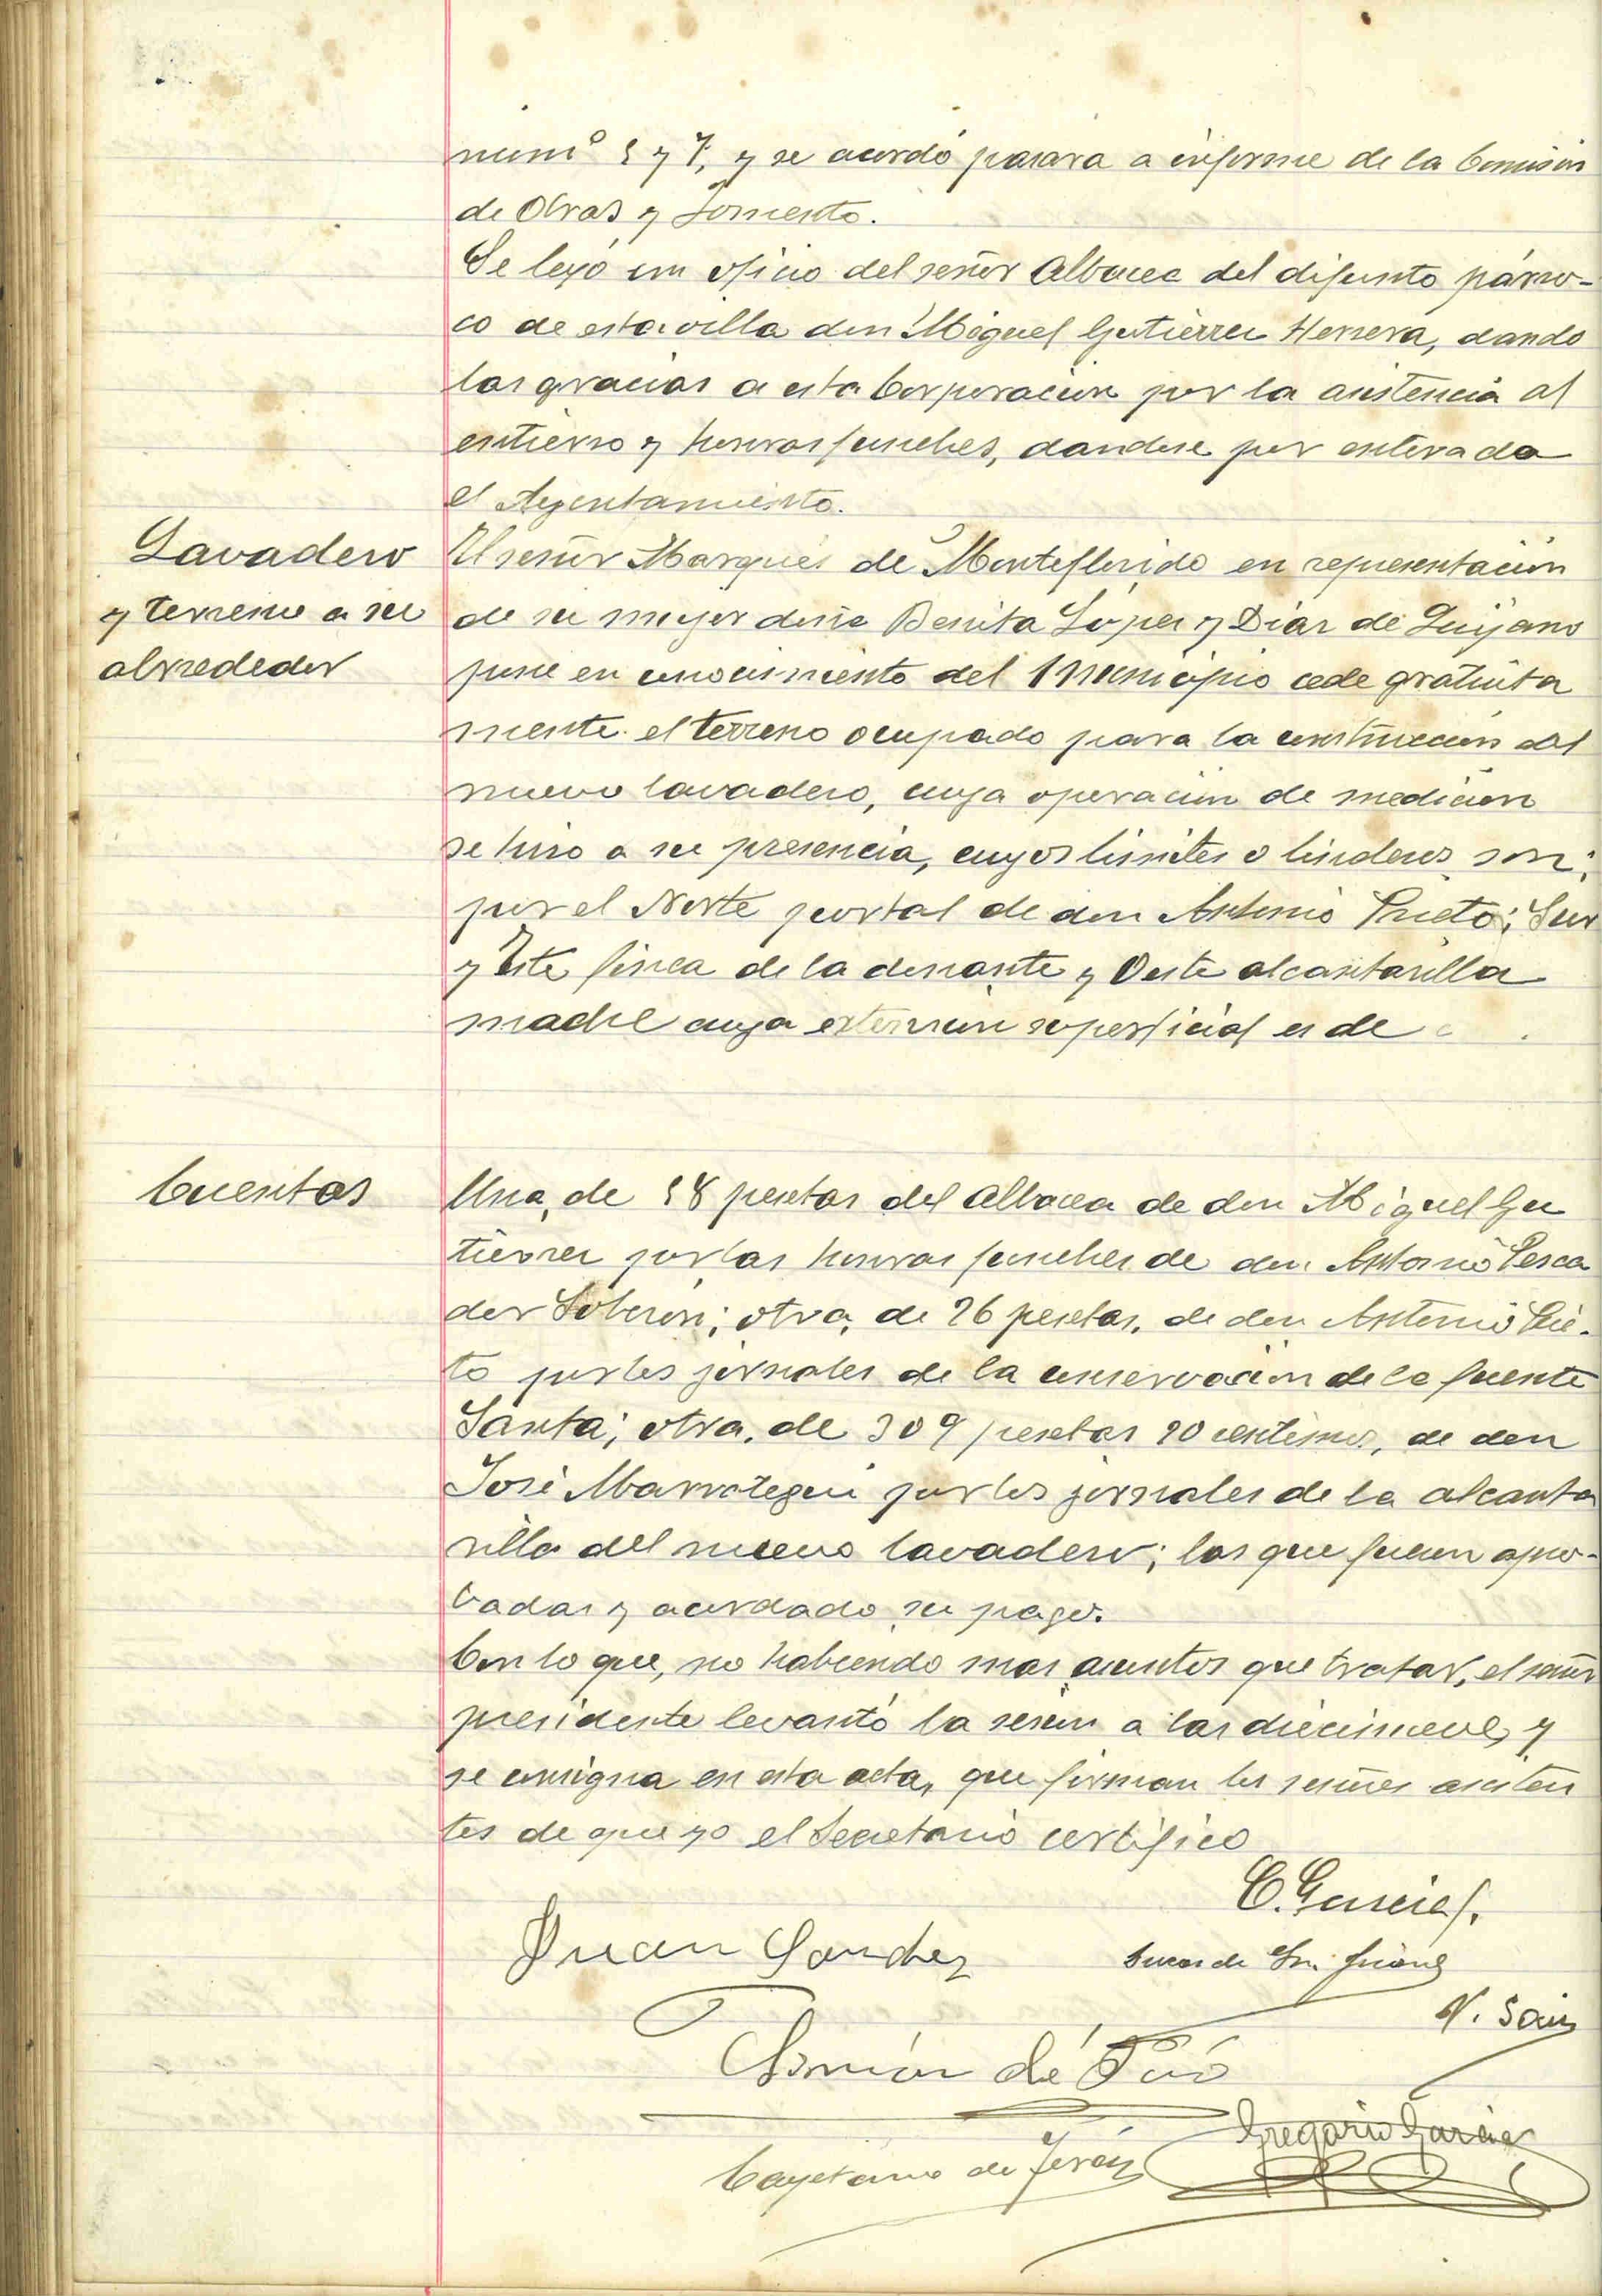 numº 5 y 7, y se acordó pasara a informe de la Comisión
de Obras y Fomento.
Se leyó un oficio del señor Albacea del difunto párro-
co de esta villa don Miguel Gutiérrez Herrera, dando
las gracias a esta Corporación por la asistencia al
entierro y honras funebres, dandose por enterado
el Ayuntamiento.
Lavadero
y terreno a su
alrededor
El señor Marqués de Monteflorido en representación
de su mujer doña Benita López y Diaz de Quijano
pone en conocimiento del Municipio cede gratuita
mente el terreno ocupado para la construccion del
nuevo lavadero, cuya operacion de medicion
se hizo a su presencia, cuyos limites o linderos son:
por el Norte portal de don Antonio Prieto; Sur
y Este finca de la donante y Oeste alcantarilla
madre cuya extension superficial es de
Cuentas
Una, de 58 pesetas del albacea de don Miguel Gu
tierrez por las honras funebres de don Antonio Pesca
dor Soberón; otra, de 26 pesetas, de don Antonio Prie-
to por los jornales de la conservacion de la fuente
Santa; otra, de 309 pesetas 20 centimos, de don
José Marrotegui por los jornales de la alcanta
rilla del nuevo lavadero; las que fueron apro-
badas y acordado su pago.
Con lo que, no habiendo mas asuntos que tratar, el señor
presidente levantó la sesion a las diecinueve, y
se consigna en esta acta, que firman los señores asisten
tes de que yo el Secretario certifico
C. Garcia
Juan Sanchez
Lucas de
V. Saiz
Simón de
Gregorio Garcia
Cayetano de